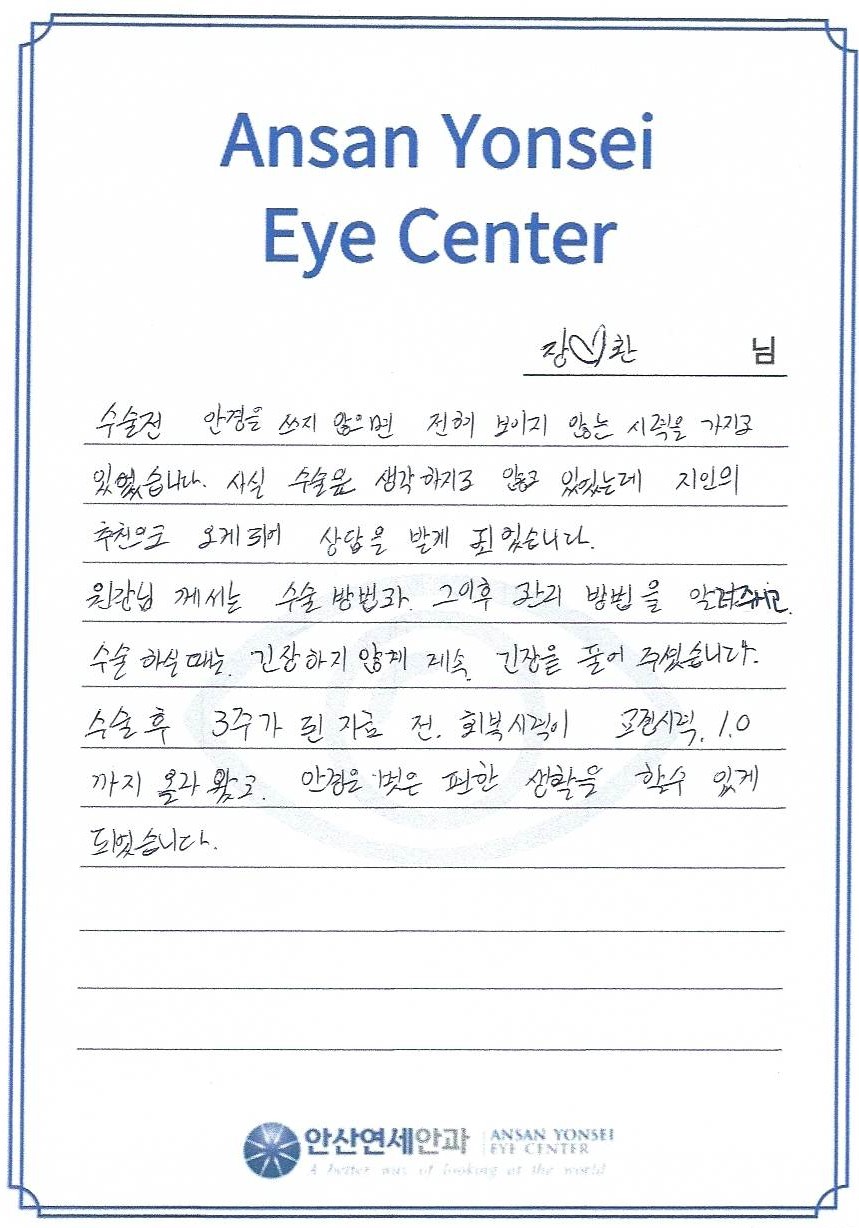 Ansan Yonsei
Eye Center
장♡환 님
수술전 안경을 쓰지 않으면 전혀 보이지 않는 시력을 가지고
있었습니다. 사실 수술은 생각하지도 않고 있었는데 지인의
추천으로 오게되어 상담을 받게 되었습니다.
원장님 께서는 수술 방법과, 그이후 관리 방법을 알려주시고,
수술 하실때는, 긴장하지 않게 계속, 긴장을 풀어 주셨습니다.
수술 후 3주가 된 지금 전, 회복시력이 교정시력, 1.0
까지 올라 왔고, 안경을 벗은 편한 생활을 할수 있게
되었습니다.
안산연세안과 ANSAN YONSEI
EYE CENTER
A better way of looking at the world